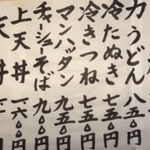 力うどん 八五〇円
冷たぬき 七五〇円
冷きつね 七五〇円
マンハッタン 九五〇円
チャシューそば 九〇〇円
上天丼 一六〇〇円
天丼 一一〇〇円